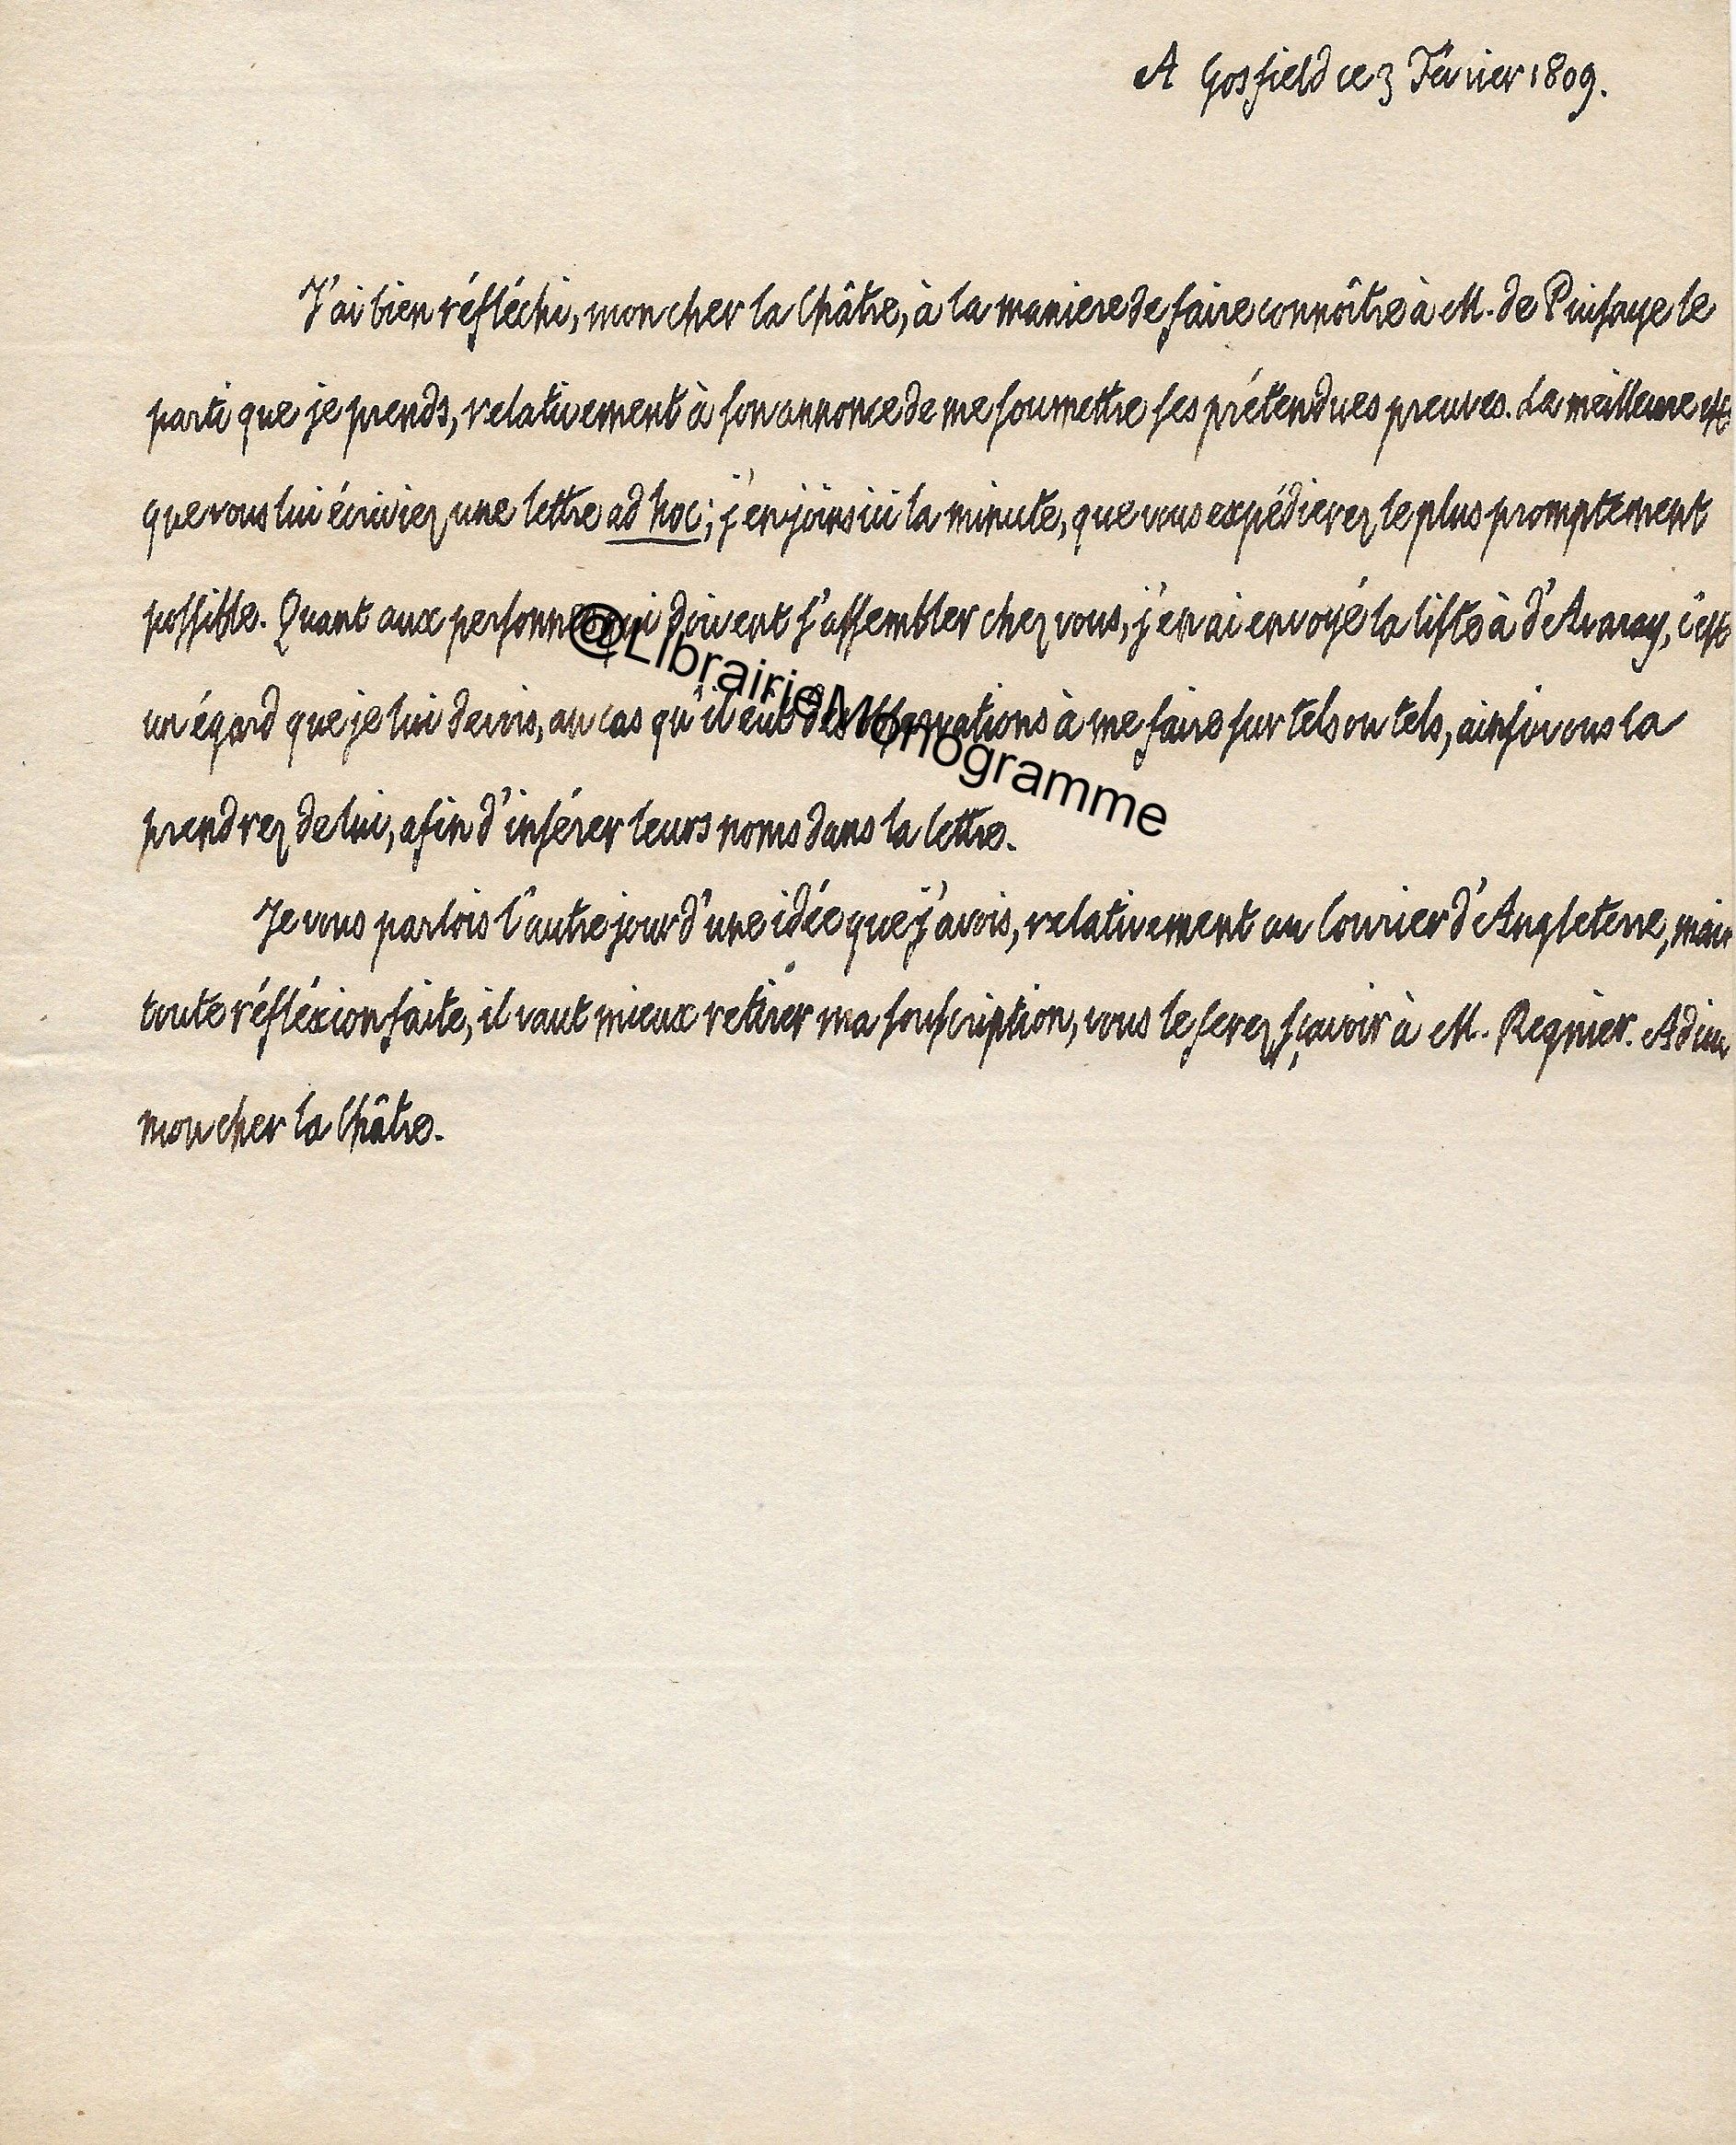 A Gosfield ce 3 Février 1809.
J'ai bien réfléchi, mon cher la Châtre, à la maniere de faire connoître à M. de Puisaye le
parti que je prends, relativement à son annonce de me soumettre ses prétendues preuves. La meilleure est
que vous lui écriviez une lettre ad hoc; j'en joins ici la minute, que vous expédierez le plus promptement
possible. Quant aux personnes qui doivent s'assembler chez vous, j'en ai envoyé la liste à d'Avaray, c'est
un égard que je lui devois, au cas qu'il eût des observations à me faire sur tels ou tels, ainsi vous la
prendrez de lui, afin d'insérer leurs noms dans la lettre.
Je vous parlois l'autre jour d'une idée que j'avois, relativement au Courier d'Angleterre, mais
toute réfléxion faite, il vaut mieux retirer ma souscription, vous le ferez sçavoir à M. Regnier. Adieu
mon cher la Châtre.
@LibrairieMonogramme